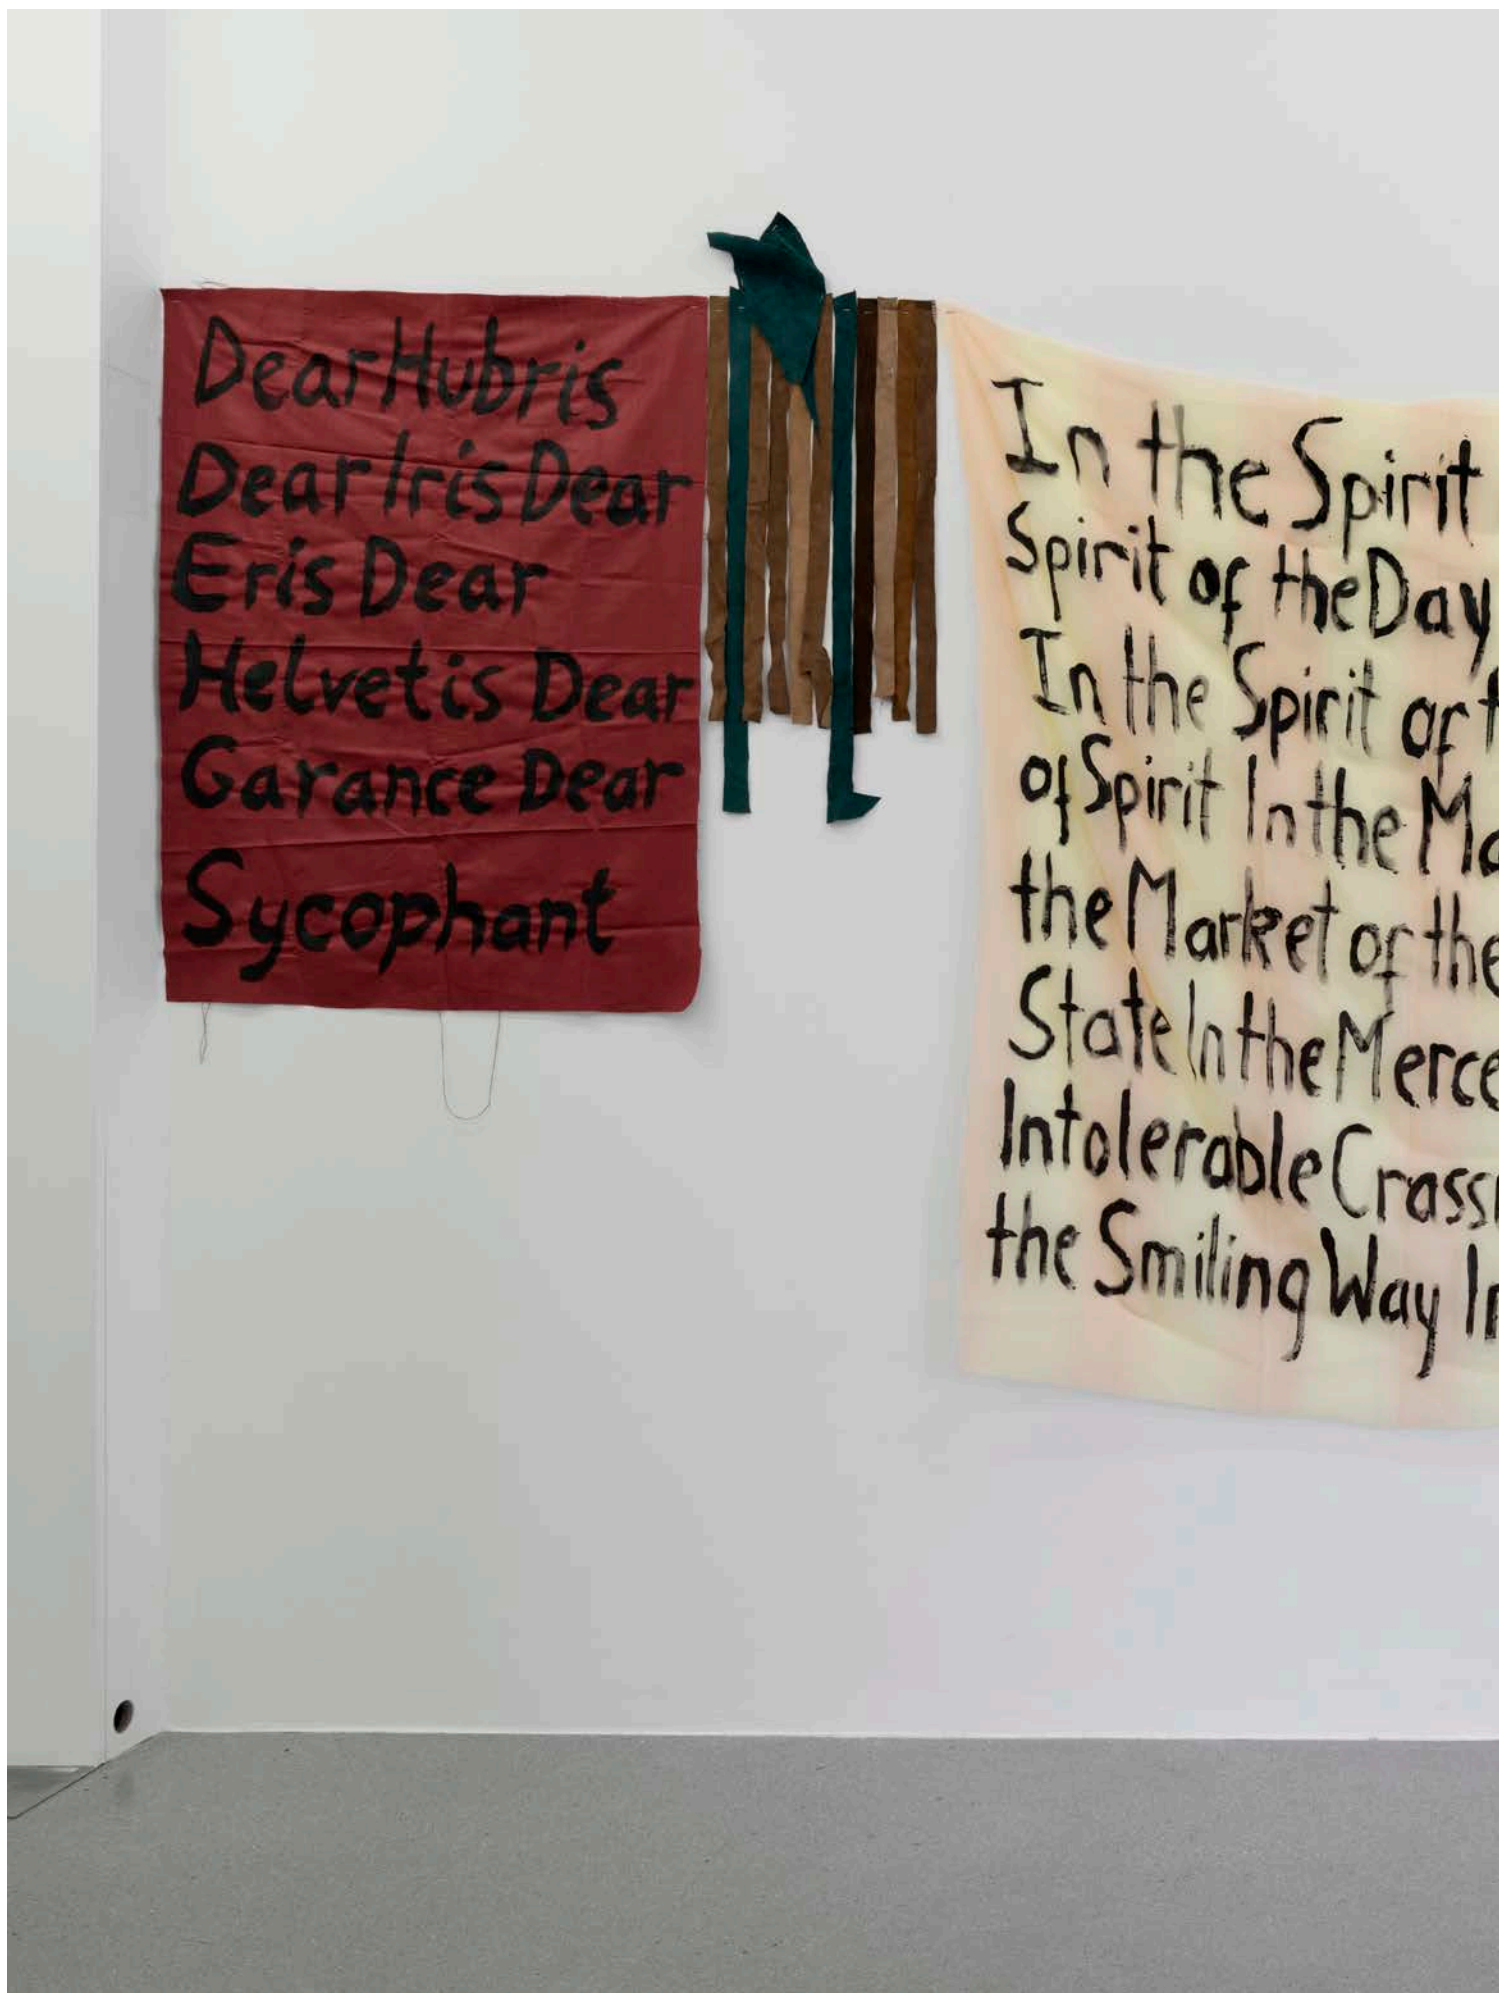 Dear Hubris
Dear Iris Dear
Eris Dear
Helvetis Dear
Garance Dear
Sycophant
In the Spirit
Spirit of the Day
In the Spirit of
of Spirit In the
the Market of the
State In the
Intolerable
the Smiling Way